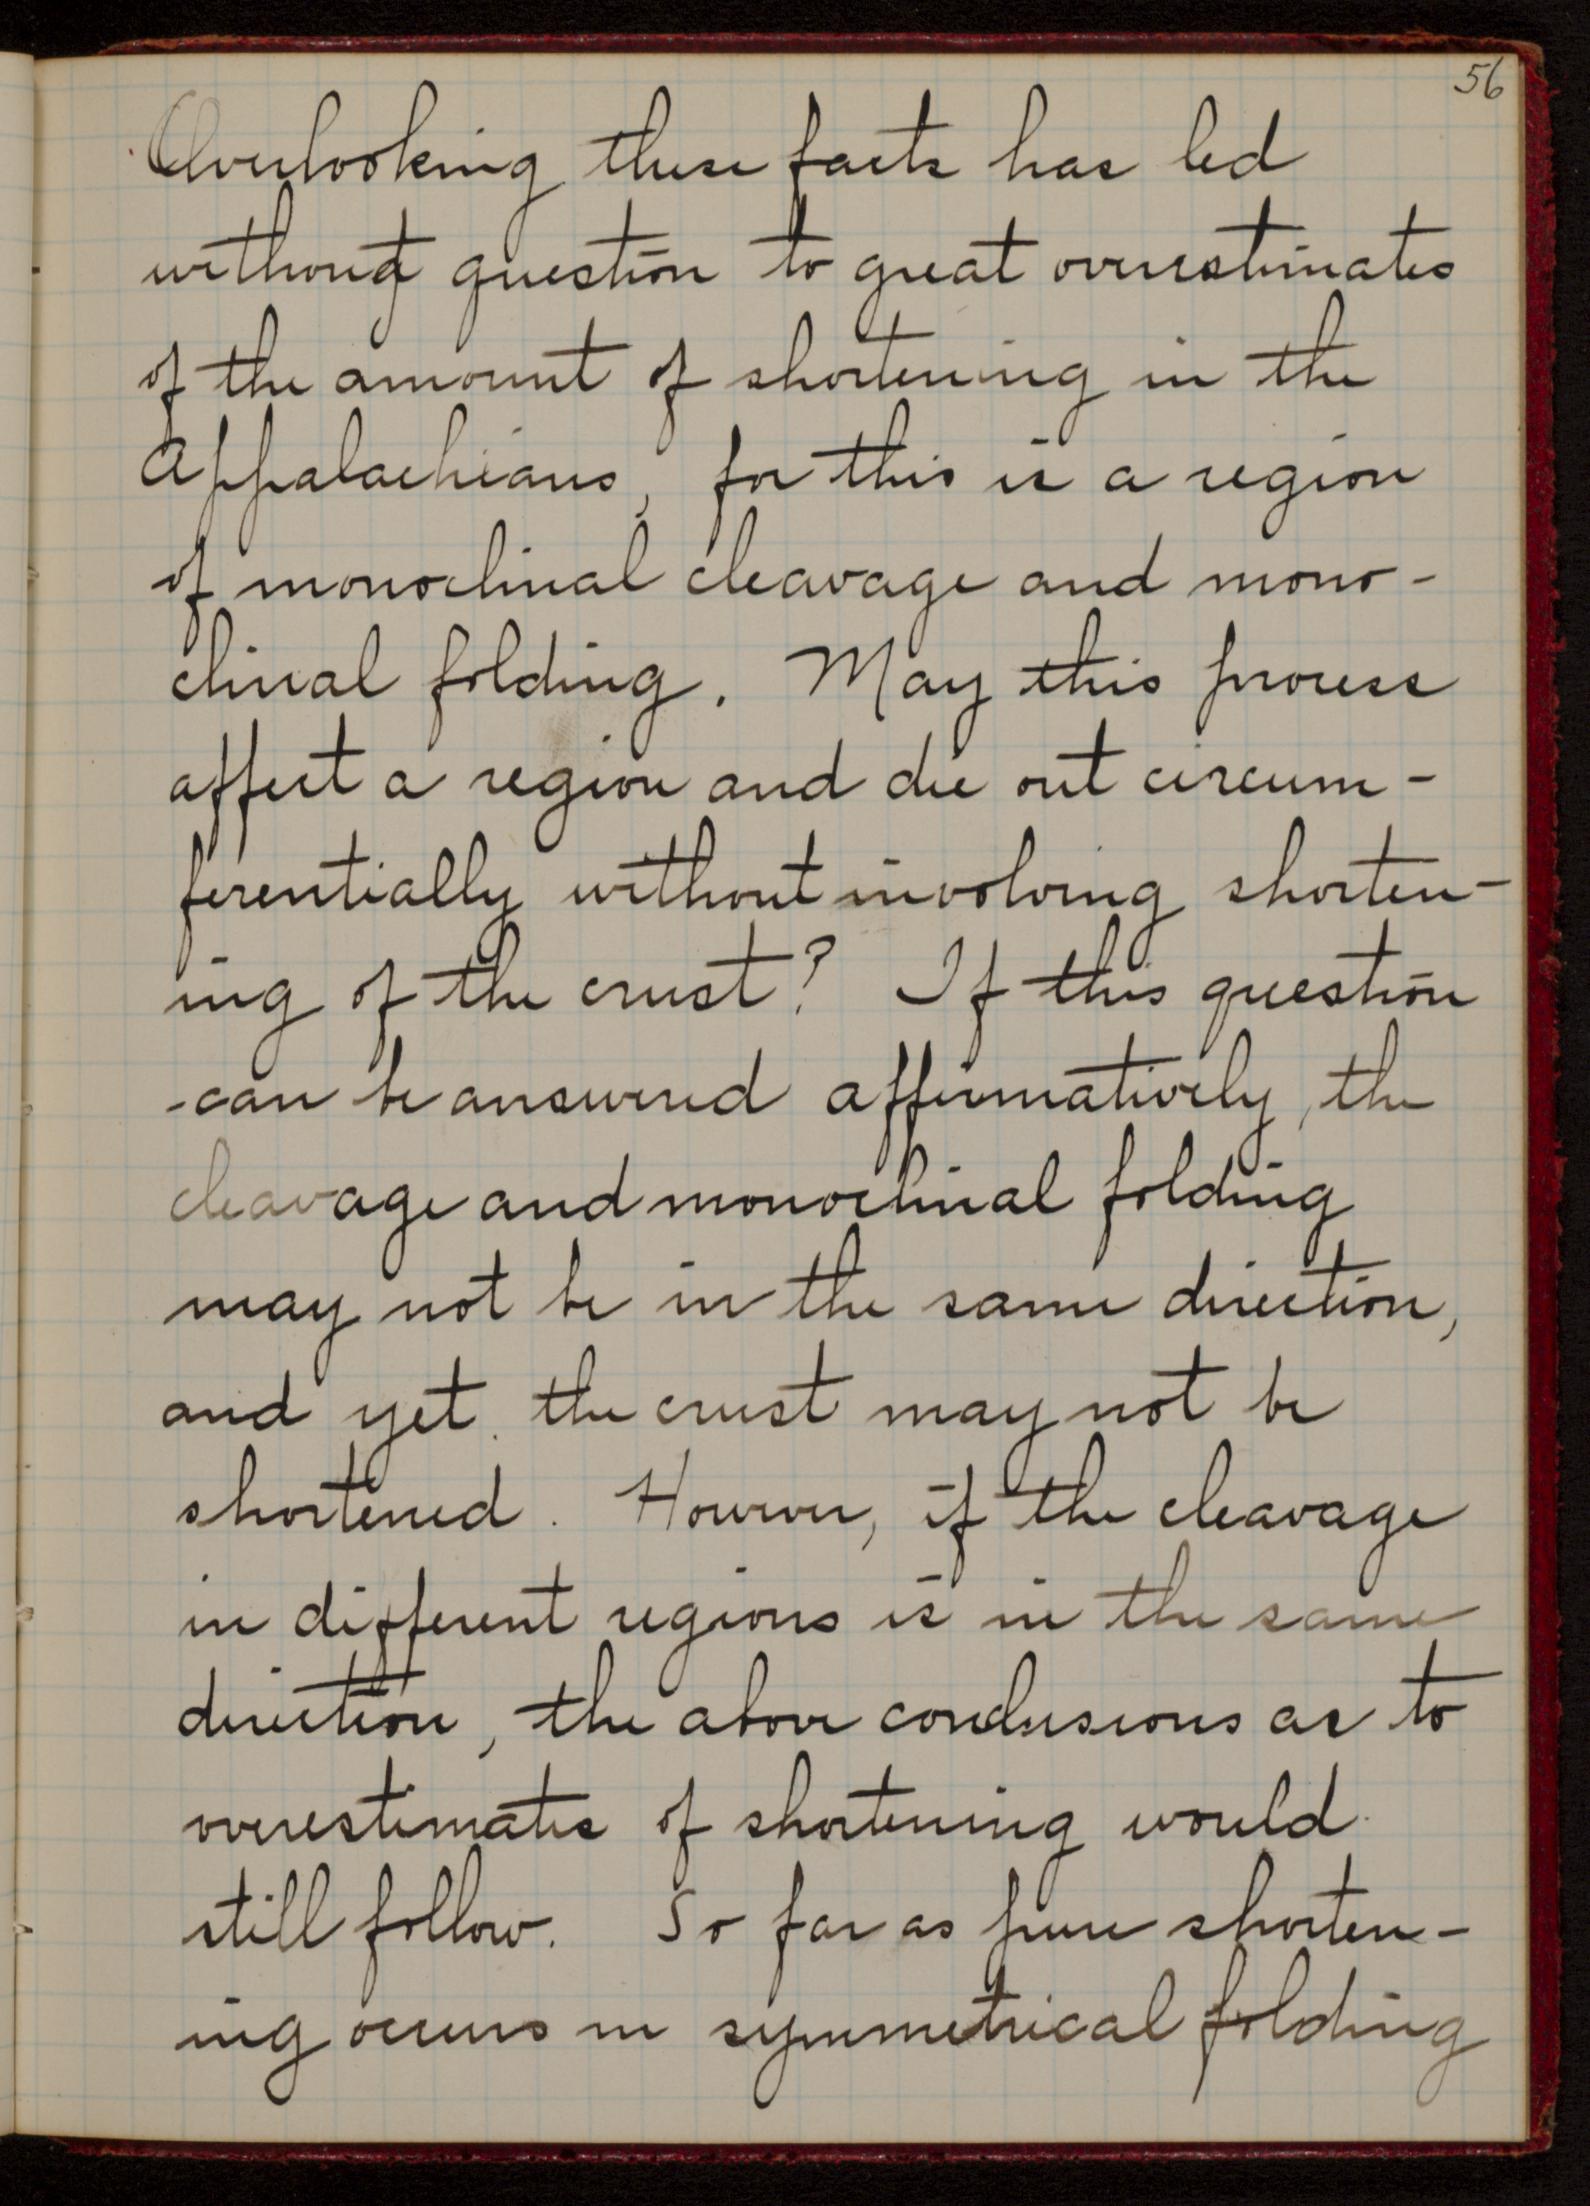 56
Overlooking these facts has led
without question to great overestimates
of the amount of shortening in the
Appalachians, for this is a region
of monoclinal cleavage and mono-
clinal folding. May this process
affect a region and die out circum-
ferentially without involving shorten-
ing of the crust? If this question
can be answered affirmatively, the
cleavage and monoclinal folding
may not be in the same direction,
and yet the crust may not be
shortened. However, if the cleavage
in different regions is in the same
direction, the above conclusions as to
overestimates of shortening would
still follow. So far as pure shorten-
ing occurs in symmetrical folding